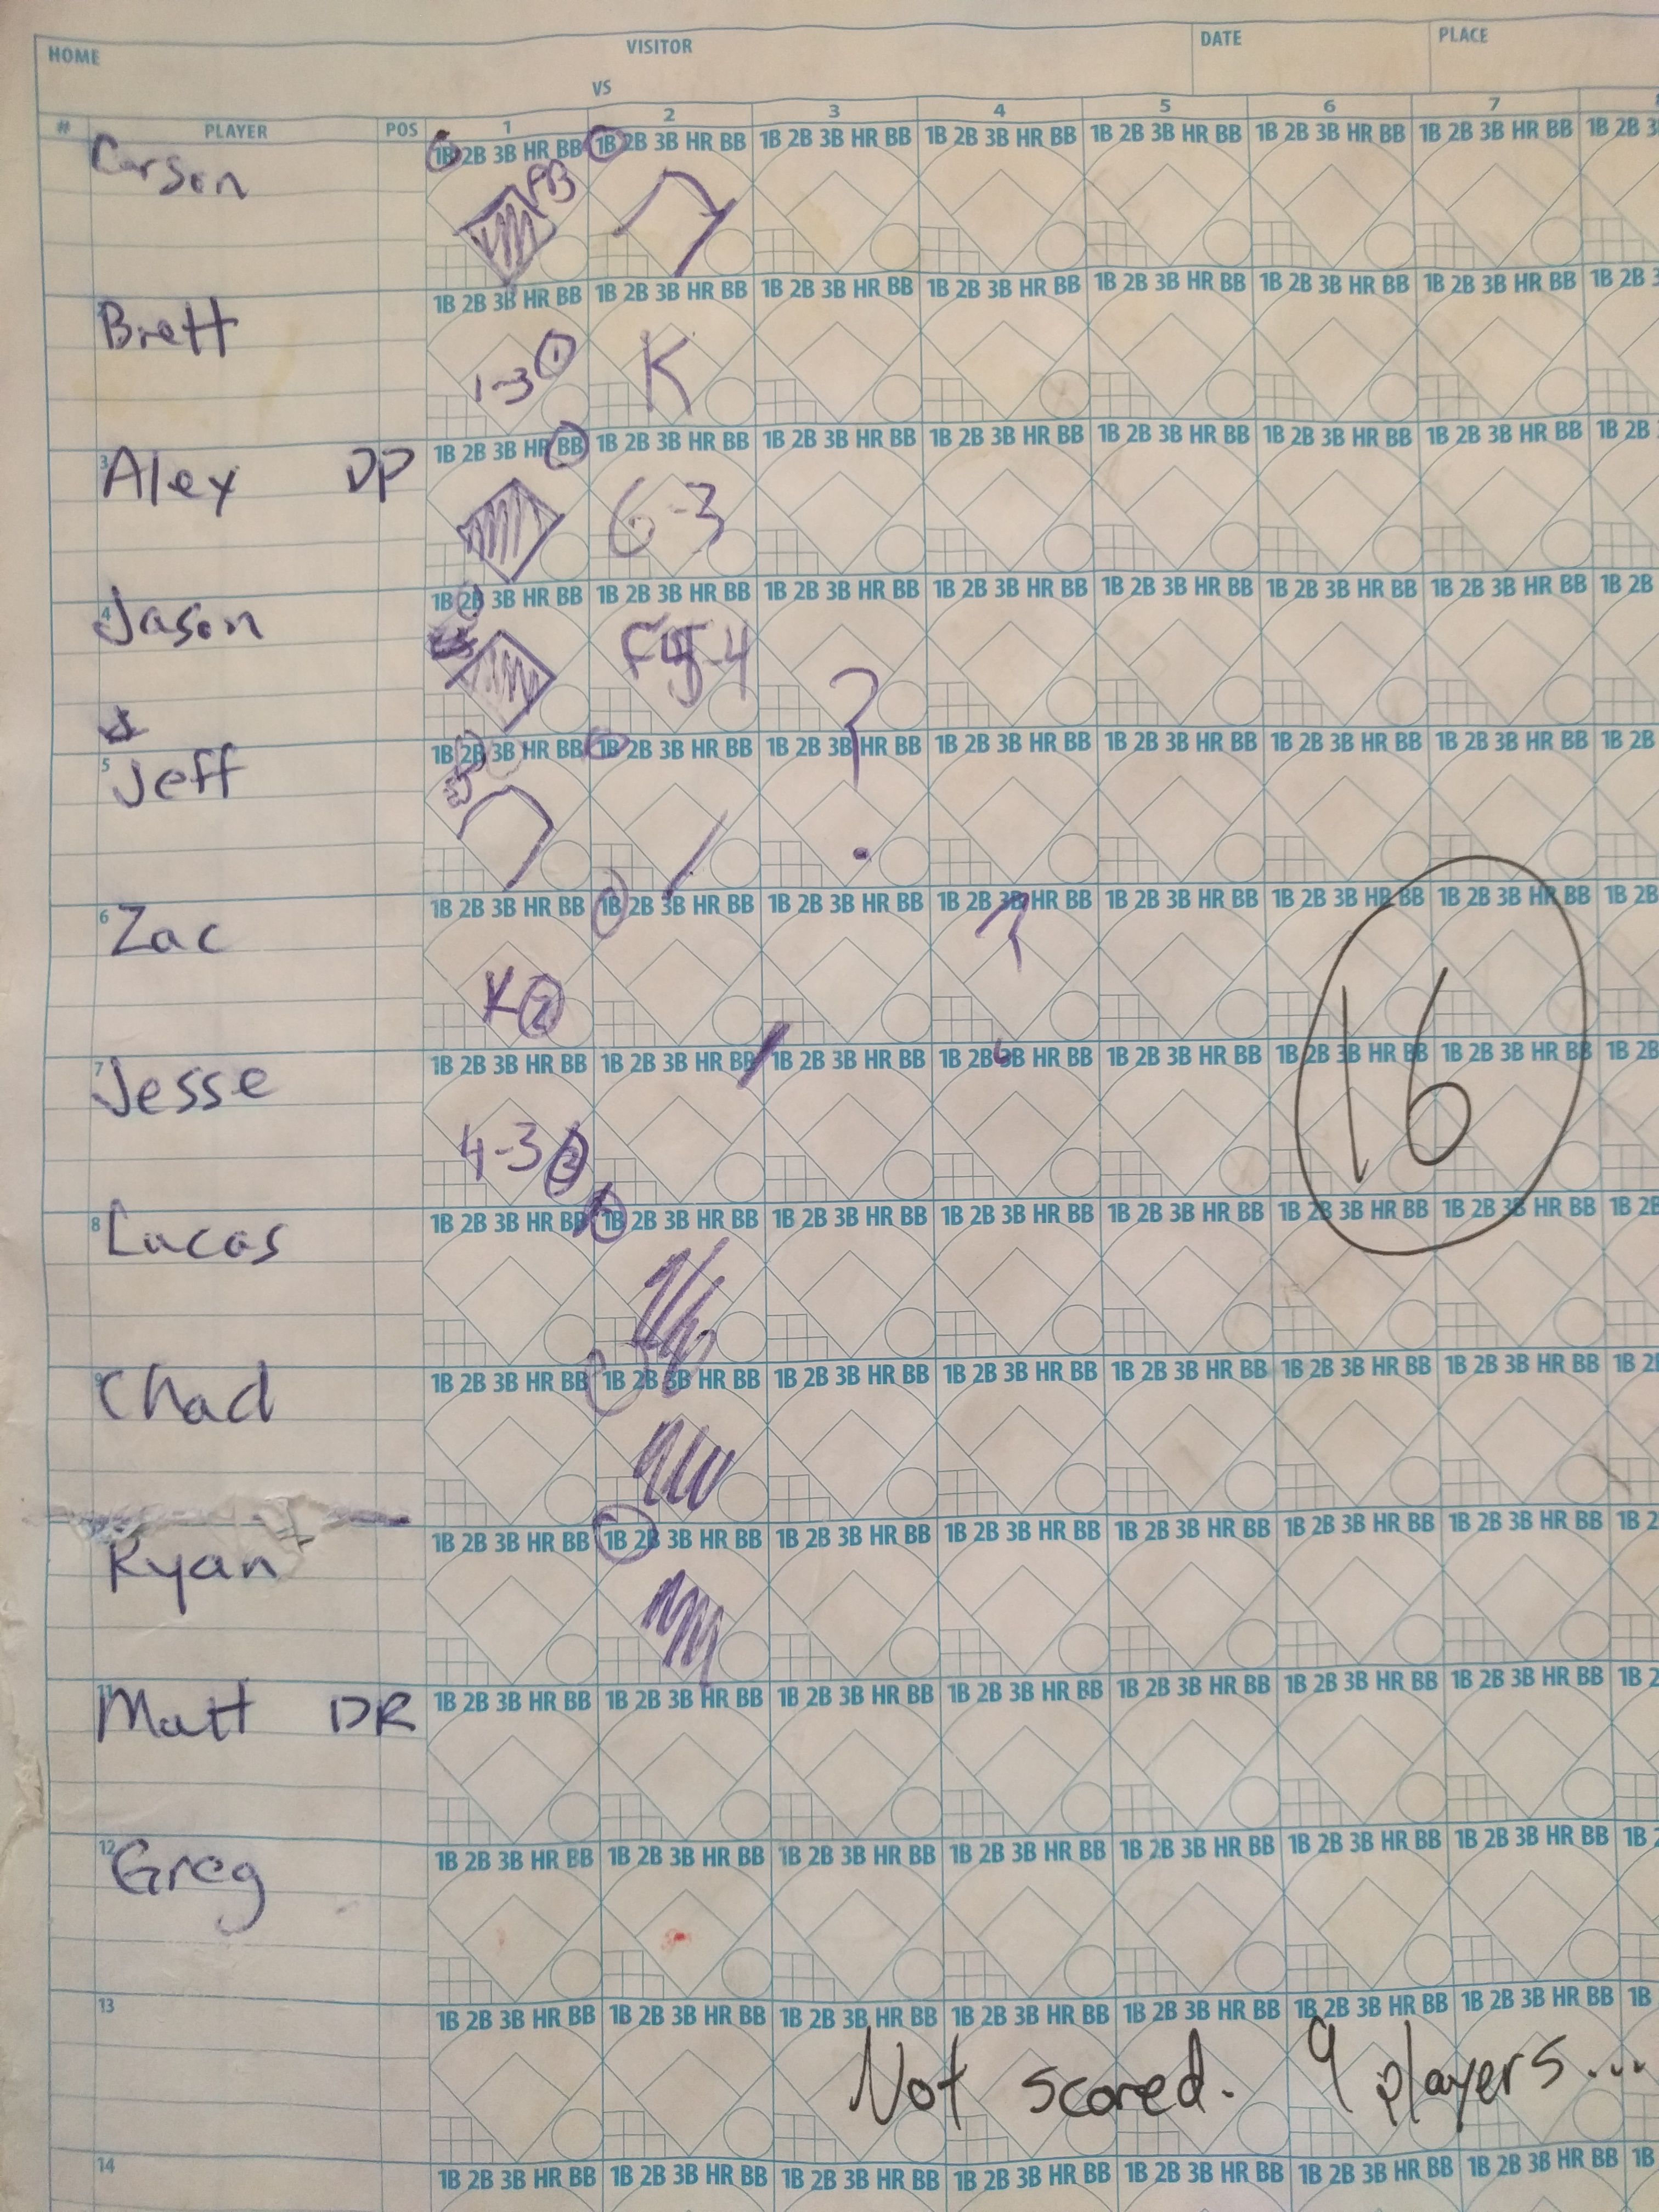 HOME VISITOR DATE PLACE
VS
# PLAYER POS 1 2 3 4 5 6 7
Carson 1B 2B 3B HR BB 1B 2B 3B HR BB 1B 2B 3B HR BB 1B 2B 3B HR BB 1B 2B 3B HR BB 1B 2B 3B HR BB 1B 2B 3B HR BB 1B 2B
PB
Brett 1B 2B 3B HR BB 1B 2B 3B HR BB 1B 2B 3B HR BB 1B 2B 3B HR BB 1B 2B 3B HR BB 1B 2B 3B HR BB 1B 2B 3B HR BB 1B 2B
1-3 1 K
3 Alex DP 1B 2B 3B HR BB 1B 2B 3B HR BB 1B 2B 3B HR BB 1B 2B 3B HR BB 1B 2B 3B HR BB 1B 2B 3B HR BB 1B 2B 3B HR BB 1B 2B
6-3
4 Jason 1B 2B 3B HR BB 1B 2B 3B HR BB 1B 2B 3B HR BB 1B 2B 3B HR BB 1B 2B 3B HR BB 1B 2B 3B HR BB 1B 2B 3B HR BB 1B 2B
?
5 Jeff 1B 2B 3B HR BB 1B 2B 3B HR BB 1B 2B 3B HR BB 1B 2B 3B HR BB 1B 2B 3B HR BB 1B 2B 3B HR BB 1B 2B 3B HR BB 1B 2B
6 Zac 1B 2B 3B HR BB 1B 2B 3B HR BB 1B 2B 3B HR BB 1B 2B 3B HR BB 1B 2B 3B HR BB 1B 2B 3B HR BB 1B 2B 3B HR BB 1B 2B
K 2 ?
7 Jesse 1B 2B 3B HR BB 1B 2B 3B HR BB 1B 2B 3B HR BB 1B 2B 3B HR BB 1B 2B 3B HR BB 1B 2B 3B HR BB 1B 2B 3B HR BB 1B 2B
4-3 16
8 Lucas 1B 2B 3B HR BB 1B 2B 3B HR BB 1B 2B 3B HR BB 1B 2B 3B HR BB 1B 2B 3B HR BB 1B 2B 3B HR BB 1B 2B 3B HR BB 1B 2B
Chad 1B 2B 3B HR BB 1B 2B 3B HR BB 1B 2B 3B HR BB 1B 2B 3B HR BB 1B 2B 3B HR BB 1B 2B 3B HR BB 1B 2B 3B HR BB 1B 2B
Ryan 1B 2B 3B HR BB 1B 2B 3B HR BB 1B 2B 3B HR BB 1B 2B 3B HR BB 1B 2B 3B HR BB 1B 2B 3B HR BB 1B 2B 3B HR BB 1B 2
11 Matt DR 1B 2B 3B HR BB 1B 2B 3B HR BB 1B 2B 3B HR BB 1B 2B 3B HR BB 1B 2B 3B HR BB 1B 2B 3B HR BB 1B 2B 3B HR BB 1B 2
12 Greg 1B 2B 3B HR BB 1B 2B 3B HR BB 1B 2B 3B HR BB 1B 2B 3B HR BB 1B 2B 3B HR BB 1B 2B 3B HR BB 1B 2B 3B HR BB 1B 2
13 1B 2B 3B HR BB 1B 2B 3B HR BB 1B 2B 3B HR BB 1B 2B 3B HR BB 1B 2B 3B HR BB 1B 2B 3B HR BB 1B 2B 3B HR BB 1B
Not scored. 9 players...
14 1B 2B 3B HR BB 1B 2B 3B HR BB 1B 2B 3B HR BB 1B 2B 3B HR BB 1B 2B 3B HR BB 1B 2B 3B HR BB 1B 2B 3B HR BB 1B